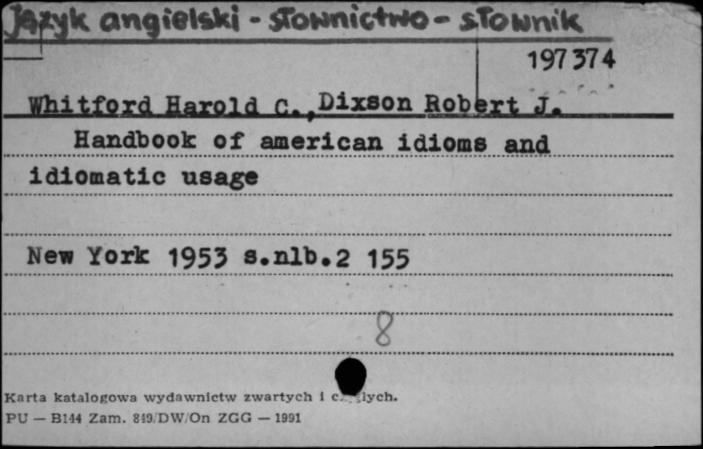 Język angielski - słownictwo - słownik
197374
Whitford Harold C., Dixson Robert J.
Handbook of american idioms and
idiomatic usage
New York 1953 s.nlb.2 155
8
Karta katalogowa wydawnictw zwartych i
PU — B144 Zam. 849/DW/On ZGG — 1991